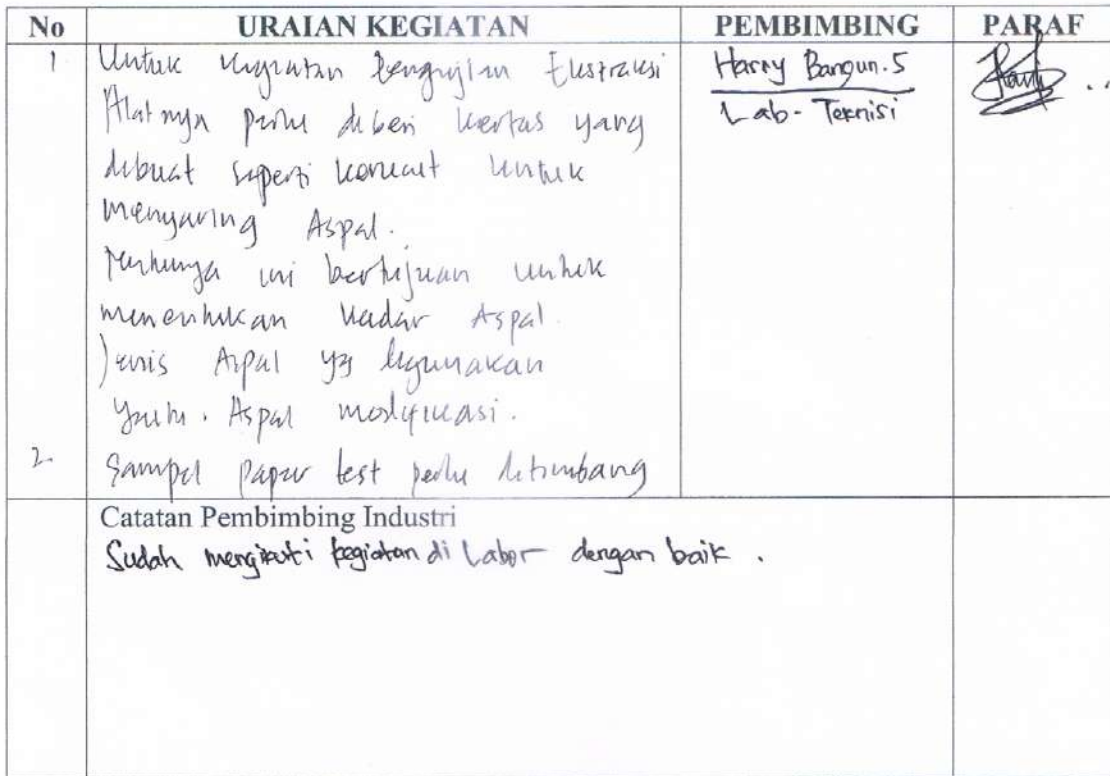 No URAIAN KEGIATAN PEMBIMBING PARAF
1 Untuk kegiatan Pengujian Ekstraksi Harry Bangun.S
Alatnya perlu diberi kertas yang Lab-Teknisi
dibuat seperti untuk
menyaring Aspal.
ini bertujuan untuk
menentukan kadar Aspal.
Jenis Aspal yg digunakan
yaitu. Aspal modifikasi.
2 Sampel paper test perlu ditimbang
Catatan Pembimbing Industri
Sudah mengikuti kegiatan di Labor dengan baik .